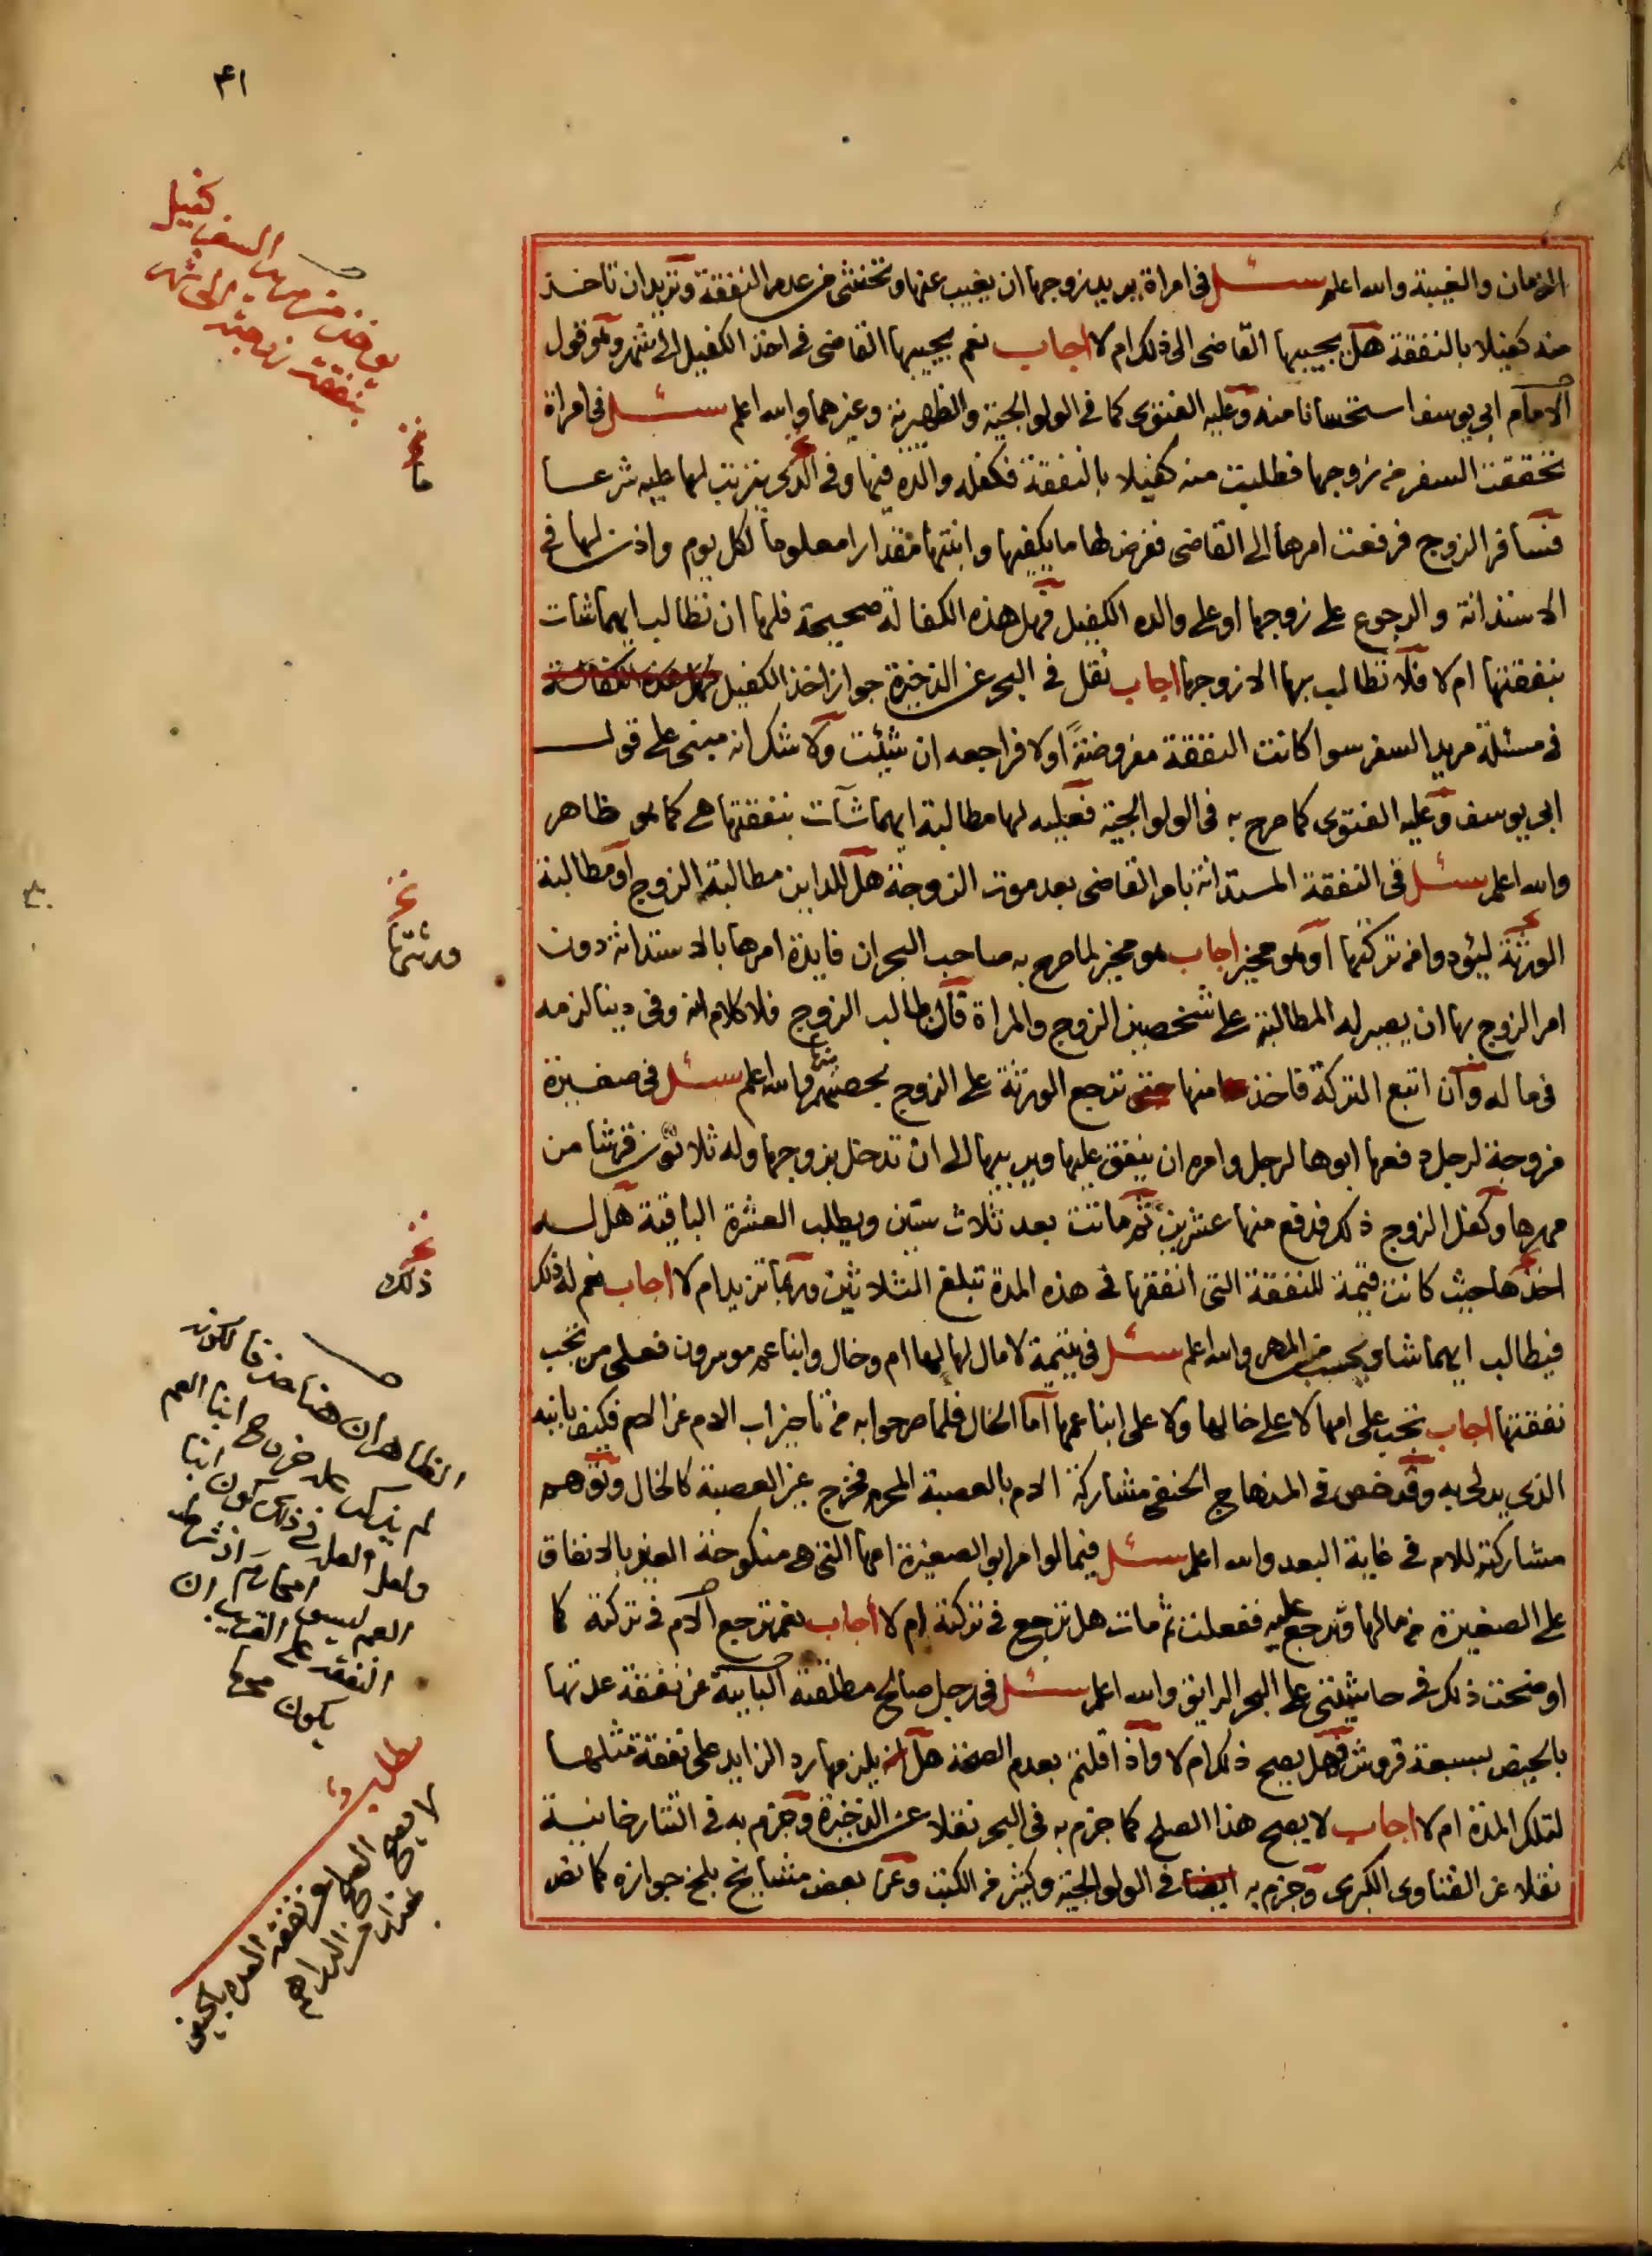 ٤١
الزمان والغيبة والله اعلم سئل في امراة يريد زوجها ان يغيب عنها وتخشى من عدم النفقة وتريد ان تاخذ
منه كفيلا بالنفقة هل يجيبها القاضي الى ذلك ام لا اجاب نعم يجيبها القاضي في اخذ الكفيل الى شهر وهو قول
الامام ابي يوسف استحسانا منه وعليه الفتوى كما في الولوالجية والظهيرية وغيرهما والله اعلم سئل في امراة
تحققت السفر من زوجها فطلبت منه كفيلا بالنفقة فكفله والده فيها وفي الذي يترتب لها عليه شرعا
فسافر الزوج فرفعت امرها الى القاضي ففرض لها ما يكفيها وابنتها مقدارا معلوما لكل يوم واذن لها في
الاستدانة والرجوع على زوجها او على والده الكفيل فهل هذه الكفالة صحيحة فلها ان تطالب ايهما شات
بنفقتها ام لا فلا تطالب بها الا زوجها اجاب نقل في البحر عن الذخيرة جواز اخذ الكفيل فهل هذه الكفالة
في مسئلة مريد السفر سوا كانت النفقة مفروضة اولا فراجعه ان شئت ولا شك انه مبني على قول
ابي يوسف وعليه الفتوى كما صرح به في الولوالجية فعليه لها مطالبة ايهما شات بنفقتها هي كما هو ظاهر
والله اعلم سئل في النفقة المستدانة بامر القاضي بعد موت الزوجة هل للداين مطالبة الزوج او مطالبة
الورثة ليؤدوا من تركتها او هو مخير اجاب هو مخير لما صرح به صاحب البحر ان فايدة امرها بالاستدانة دون
امر الزوج بها ان يصير له المطالبة على شخصين الزوج والمراة فان طالب الزوج فلا كلام انه وفى دينا لزمه
في ماله وان اتبع التركة فاخذ منها حتى ترجع الورثة على الزوج بحصتهم منها والله اعلم سئل في صغيرة
مزوجة لرجل دفعها ابوها لرجل وامره ان ينفق عليها ويربيها الى ان تدخل بزوجها وله ثلاثون قرشا من
مهرها وكفل الزوج ذلك فدفع منها عشرين ثم ماتت بعد ثلاث سنين ويطلب العشرة الباقية هل له
اخذها حيث كانت قيمة للنفقة التي انفقها في هذه المدة تبلغ الثلاثين وربما تزيد ام لا اجاب نعم له ذلك
فيطالب ايهما شا ويحسب من المهر والله اعلم سئل في يتيمة لا مال لها لها ام وخال وابنا عم موسرون فعلى من تجب
نفقتها اجاب تجب على امها لا على خالها ولا على ابنا عمها اما الخال فلما صرحوا به من تاخير اب الام عن الام فكيف بابنه
الذي يدلي به وقد خص في المنهاج الحنفي مشاركة الام بالعصبة المحرم فخرج غير العصبة كالخال وتوهم
مشاركته للام في غاية البعد والله اعلم سئل فيما لو امر ابو الصغيرة امها التي هي منكوحة الغير بالانفاق
على الصغيرة من مالها وترجع عليه ففعلت ثم مات هل ترجع في تركته ام لا اجاب نعم ترجع الام في تركته كما
اوضحت ذلك في حاشيتي على البحر الرايق والله اعلم سئل في رجل صالح مطلقته الباينة عن نفقة عدتها
بالحيض بسبعة قروش فهل يصح ذلك ام لا واذا قلتم بعدم الصحة هل يلزمها رد الزايد على نفقة مثلها
لتلك المدة ام لا اجاب لا يصح هذا الصلح كما جزم به في البحر نقلا عن الذخيرة وجزم به في التتارخانية
نقلا عن الفتاوى الكبرى وجزم به ايضا في الولوالجية وكثير من الكتب وعن بعض مشايخ بلخ جوازه كما نص
يوخذ من مريد السفر كفيل
بنفقة زوجته الى شهر
ما
ورثتها
ذلك
الظاهر ان هنا حذفا لكونه
لم يذكر علة خروج ابنا العم
ولعل العلة في ذلك كون ابنا
العم ليسوا محارم اذ شرط
النفقة على القريب ان
يكون محرما
مطلب
لا يصح الصلح عن نفقة العدة بالحيض
بمقدار من الدراهم